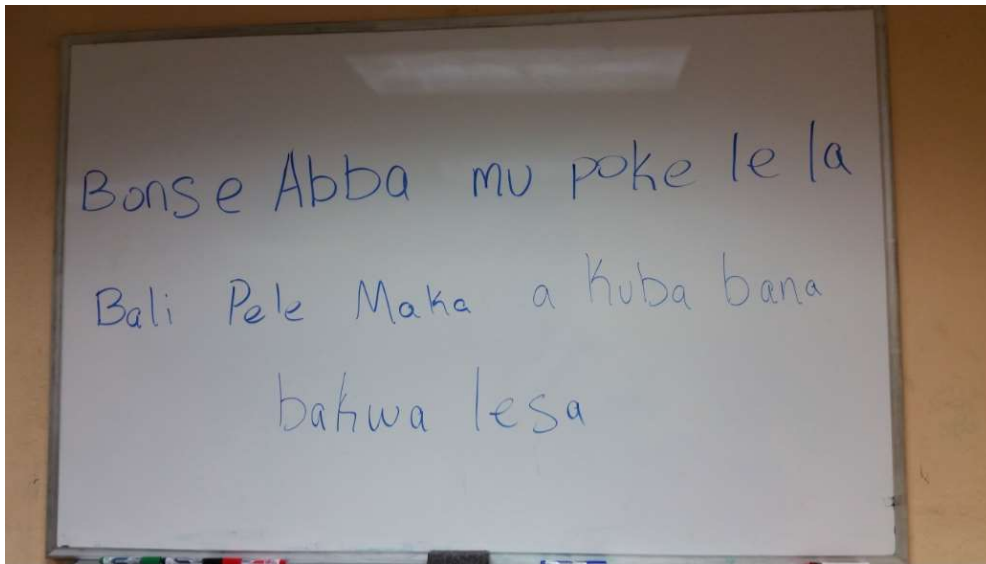 Bonse Abba mu poke le la
Bali Pele Maka a Kuba bana
bakwa lesa